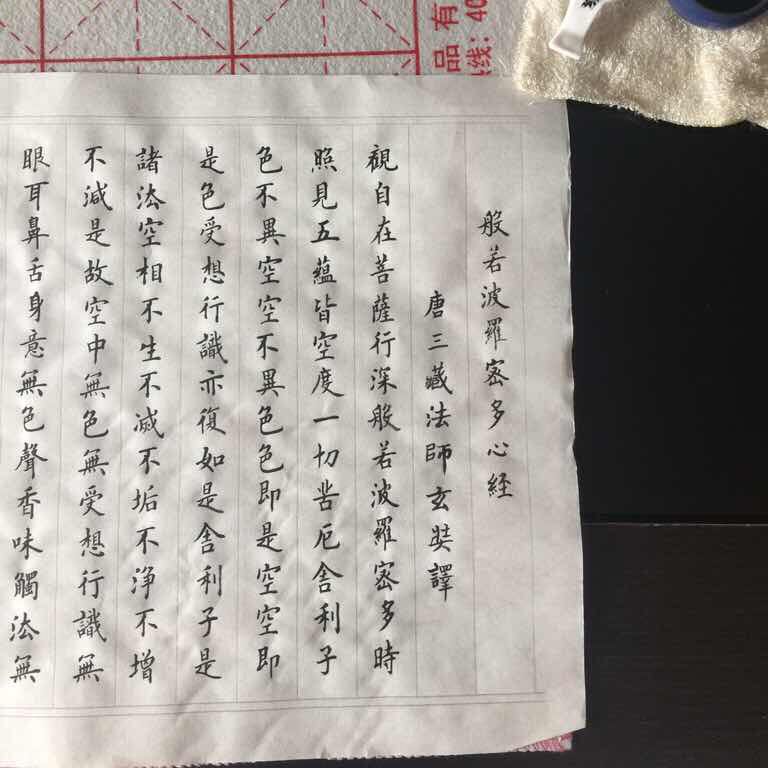 般若波羅蜜多心經
唐三藏法師玄奘譯
觀自在菩薩行深般若波羅蜜多時
照見五蘊皆空度一切苦厄舍利子
色不異空空不異色色即是空空即
是色受想行識亦復如是舍利子是
諸法空相不生不滅不垢不淨不增
不減是故空中無色無受想行識無
眼耳鼻舌身意無色聲香味觸法無
品 有
线: 40